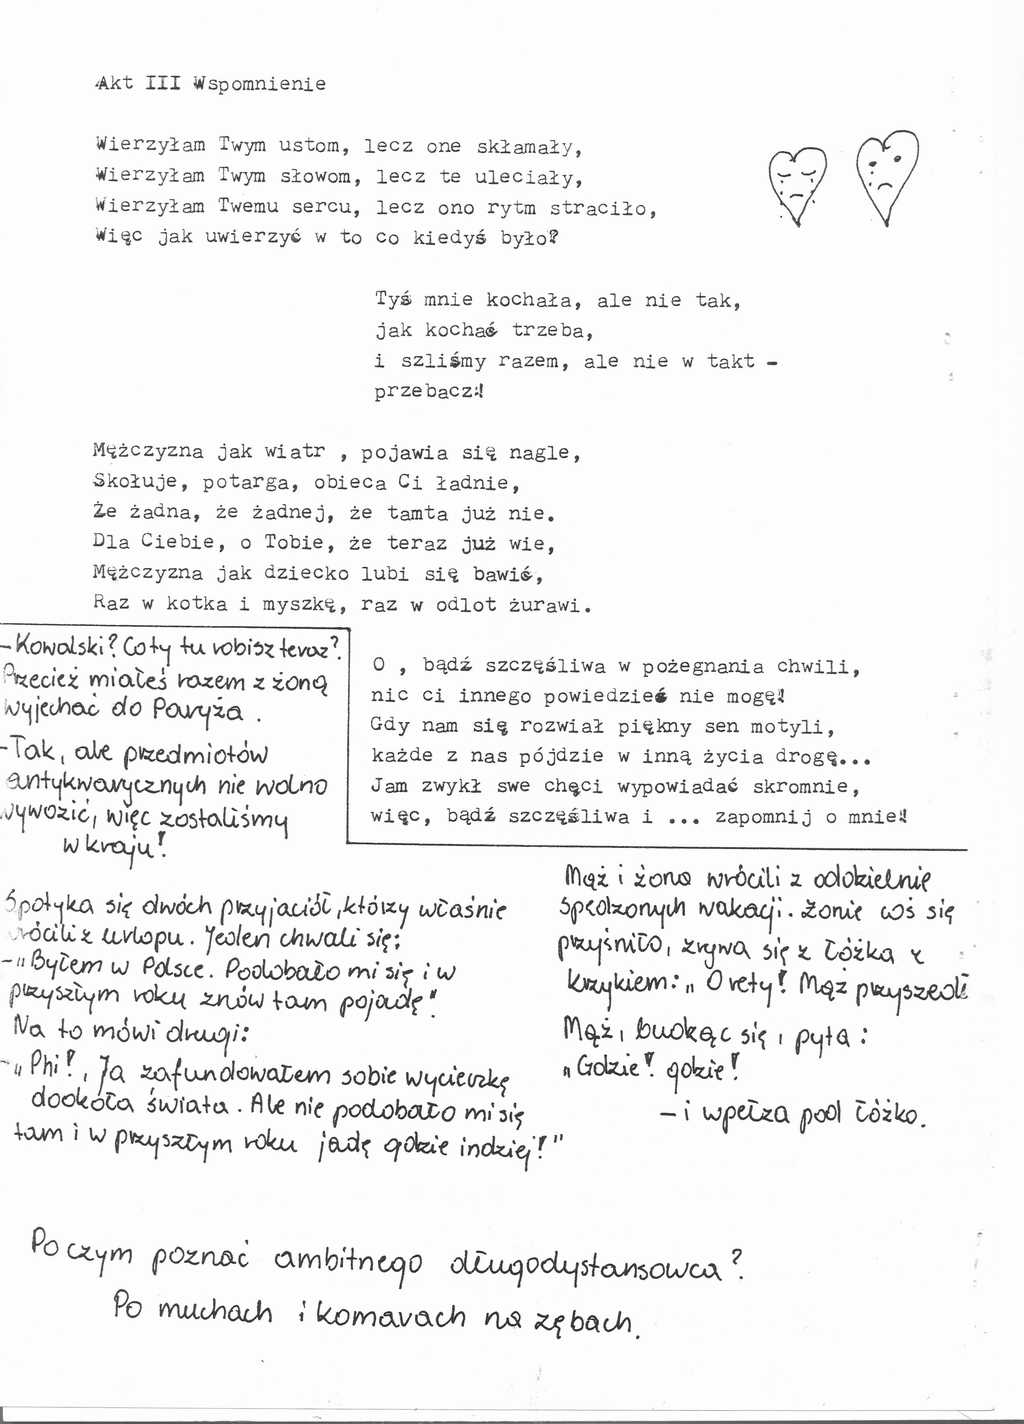 Akt III Wspomnienie
Wierzyłam Twym ustom, lecz one skłamały,
Wierzyłam Twym słowom, lecz te uleciały,
Wierzyłam Twemu sercu, lecz ono rytm straciło,
Więc jak uwierzyć w to co kiedyś było?
Tyś mnie kochała, ale nie tak,
jak kochać trzeba,
i szliśmy razem, ale nie w takt -
przebacz!
Mężczyzna jak wiatr , pojawia się nagle,
Skołuje, potarga, obieca Ci ładnie,
Że żadna, że żadnej, że tamta już nie.
Dla Ciebie, o Tobie, że teraz już wie,
Mężczyzna jak dziecko lubi się bawić,
Raz w kotka i myszkę, raz w odlot żurawi.
- Kowalski? Co ty tu robisz teraz?
Przecież miałeś razem z żoną
wyjechać do Paryża .
- Tak, ale przedmiotów
antykwarycznych nie wolno
wywozić, więc zostaliśmy
w kraju!
O , bądź szczęśliwa w pożegnania chwili,
nic ci innego powiedzieć nie mogę!
Gdy nam się rozwiał piękny sen motyli,
każde z nas pójdzie w inną życia drogę...
Jam zwykł swe chęci wypowiadać skromnie,
więc, bądź szczęśliwa i ... zapomnij o mnie!
Spotyka się dwóch przyjaciół, którzy właśnie
wrócili z urlopu. Jeden chwali się:
- "Byłem w Polsce. Podobało mi się i w
przyszłym roku znów tam pojadę"
Na to mówi drugi:
- "Phi!, Ja zafundowałem sobie wycieczkę
dookoła świata. Ale nie podobało mi się
tam i w przyszłym roku jadę gdzie indziej!"
Mąż i żona wrócili z oddzielnie
spędzonych wakacji. Żonie coś się
przyśniło, zrywa się z łóżka z
krzykiem: "O rety! Mąż przyszedł
Mąż, budząc się, pyta:
"Gdzie? gdzie!
- i wpełza pod łóżko.
Po czym poznać ambitnego długodystansowca?
Po muchach i komarach na zębach.